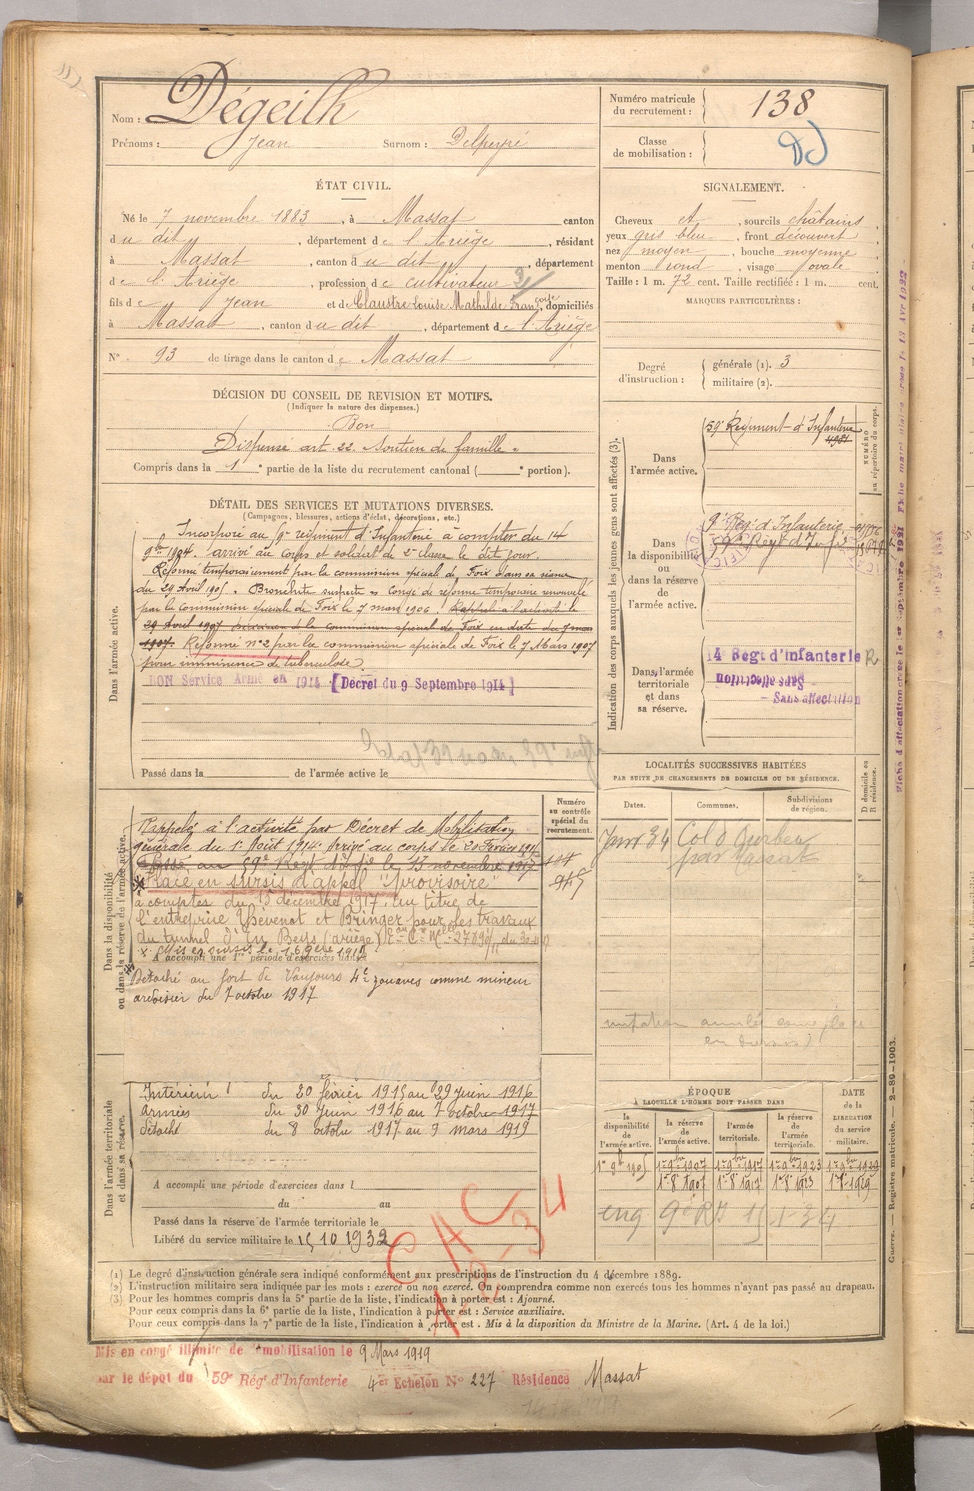 Nom : Dégeilh
Prénoms : Jean Surnom : Delpeyré
ÉTAT CIVIL.
Né le 7 novembre 1883, à Massat canton
du dit, département de l'Ariège, résidant
à Massat, canton du dit, département
de l'Ariège, profession de cultivateur
fils de Jean et de Claustre Louise Mathilde Françoise, domiciliés
à Massat, canton du dit, département de l'Ariège
N° 93 de tirage dans le canton de Massat
DÉCISION DU CONSEIL DE REVISION ET MOTIFS.
(Indiquer la nature des dispenses.)
Bon
Dispensé art. 22. Soutien de famille.
Compris dans la 1e partie de la liste du recrutement cantonal ( e portion).
DÉTAIL DES SERVICES ET MUTATIONS DIVERSES.
(Campagnes, blessures, actions d'éclat, décorations, etc.)
Dans l'armée active.
Incorporé au 9e régiment d'Infanterie à compter du 14
9bre 1904. Arrivé au corps et soldat de 2e classe le dit jour.
Réformé temporairement par la commission spéciale de Foix dans sa séance
du 29 Avril 1905. Bronchite suspecte. Congé de réforme temporaire renouvelé
par la Commission spéciale de Foix le 7 mars 1906. Rappelé à l'activité le
29 Avril 1907 décision de la commission spéciale de Foix en date du 7 mars
1907. Réformé n°2 par la commission spéciale de Foix le 7 Mars 1907
pour imminence de tuberculose.
BON Service Armé en 1914 [Décret du 9 Septembre 1914]
Passé dans la de l'armée active le
Dans la disponibilité ou dans la réserve de l'armée active.
Numéro au contrôle spécial du recrutement.
Rappelé à l'activité par Décret de Mobilisation
générale du 1er Août 1914. Arrivé au corps le 20 Février 1915
Passé au 59e Regt d'Infie le 13 novembre 1917
Placé en sursis d'appel "Provisoire"
à compter du 15 décembre 1917. au titre de
l'entreprise Thévenot et Bringer pour les travaux
A accompli une 1re période d'exercices dans
Détaché au fort de Vaujours 4e zouaves comme mineur
ardoisier du 7 octobre 1917
Dans l'armée territoriale et dans sa réserve.
Intérieur du 20 février 1915 au 29 juin 1916
Armées du 30 juin 1916 au 7 octobre 1917
Détaché du 8 octobre 1917 au 9 mars 1919
A accompli une période d'exercices dans l
du au
Passé dans la réserve de l'armée territoriale le
Libéré du service militaire le 15 10 1932
Numéro matricule du recrutement : 138
Classe de mobilisation :
SIGNALEMENT.
Cheveux et, sourcils châtains,
yeux gris bleu, front découvert,
nez moyen, bouche moyenne,
menton rond, visage ovale.
Taille : 1 m. 72 cent. Taille rectifiée : 1 m. cent.
MARQUES PARTICULIÈRES :
Degré d'instruction : générale (1). 3
militaire (2).
Indication des corps auxquels les jeunes gens sont affectés (3).
NUMÉRO au répertoire du corps.
Dans l'armée active.
59e Régiment d'Infanterie
Dans la disponibilité ou dans la réserve de l'armée active.
9e Rég. d'Infanterie
Dans l'armée territoriale et dans sa réserve.
14 Régt d'Infanterie R
Sans affectation
Sans affectation
LOCALITÉS SUCCESSIVES HABITÉES
PAR SUITE DE CHANGEMENTS DE DOMICILE OU DE RÉSIDENCE.
Dates. Communes. Subdivisions de région. D domicile ou R résidence.
34 Col d par Massat
ÉPOQUE
À LAQUELLE L'HOMME DOIT PASSER DANS
DATE de la LIBÉRATION du service militaire.
la disponibilité de l'armée active. la réserve de l'armée active. l'armée territoriale. la réserve de l'armée territoriale.
1er 9bre 1905 1er 9bre 1907 1er 9bre 1917 1er 9bre 1923 1er 9bre 1929
CAC
1-2-34
(1) Le degré d'instruction générale sera indiqué conformément aux prescriptions de l'instruction du 4 décembre 1889.
(2) L'instruction militaire sera indiquée par les mots : exercé ou non exercé. On comprendra comme non exercés tous les hommes n'ayant pas passé au drapeau.
(3) Pour les hommes compris dans la 5e partie de la liste, l'indication à porter est : Ajourné.
Pour ceux compris dans la 6e partie de la liste, l'indication à porter est : Service auxiliaire.
Pour ceux compris dans la 7e partie de la liste, l'indication à porter est : Mis à la disposition du Ministre de la Marine. (Art. 4 de la loi.)
Guerre. — Registre matricule. — 2-89-1903.
Mis en congé illimité de démobilisation le 9 Mars 1919
par le dépôt du 59e Rég d'Infanterie 4e Échelon N° 227 Résidence Massat